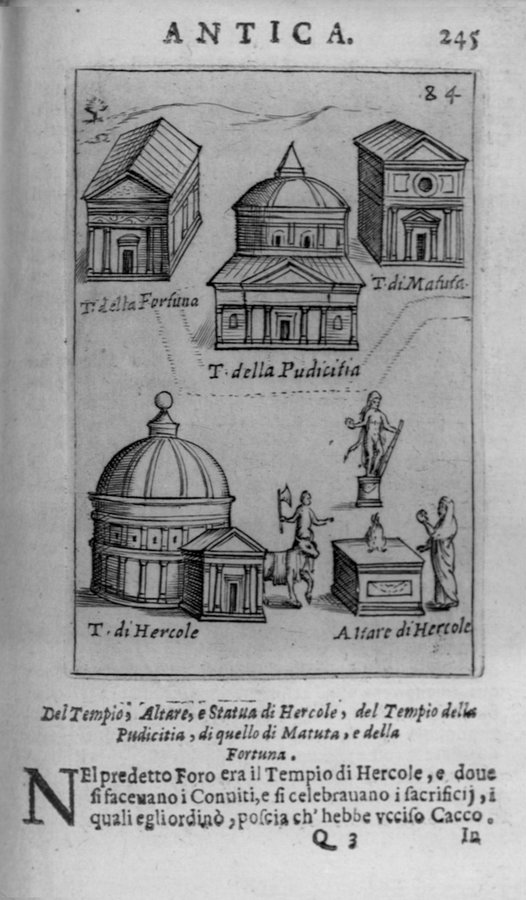 ANTICA. 245
84
T. della Fortuna
T. di Matuta.
T. della Pudicitia
T. di Hercole
Altare di Hercole
Del Tempio, Altare, e Statua di Hercole, del Tempio della
Pudicitia, di quello di Matuta, e della
Fortuna.
NEl predetto Foro era il Tempio di Hercole, e doue
si faceuano i Conuiti, e si celebrauano i sacrificij, i
quali egli ordinò, poscia ch' hebbe vcciso Cacco.
Q 3 In